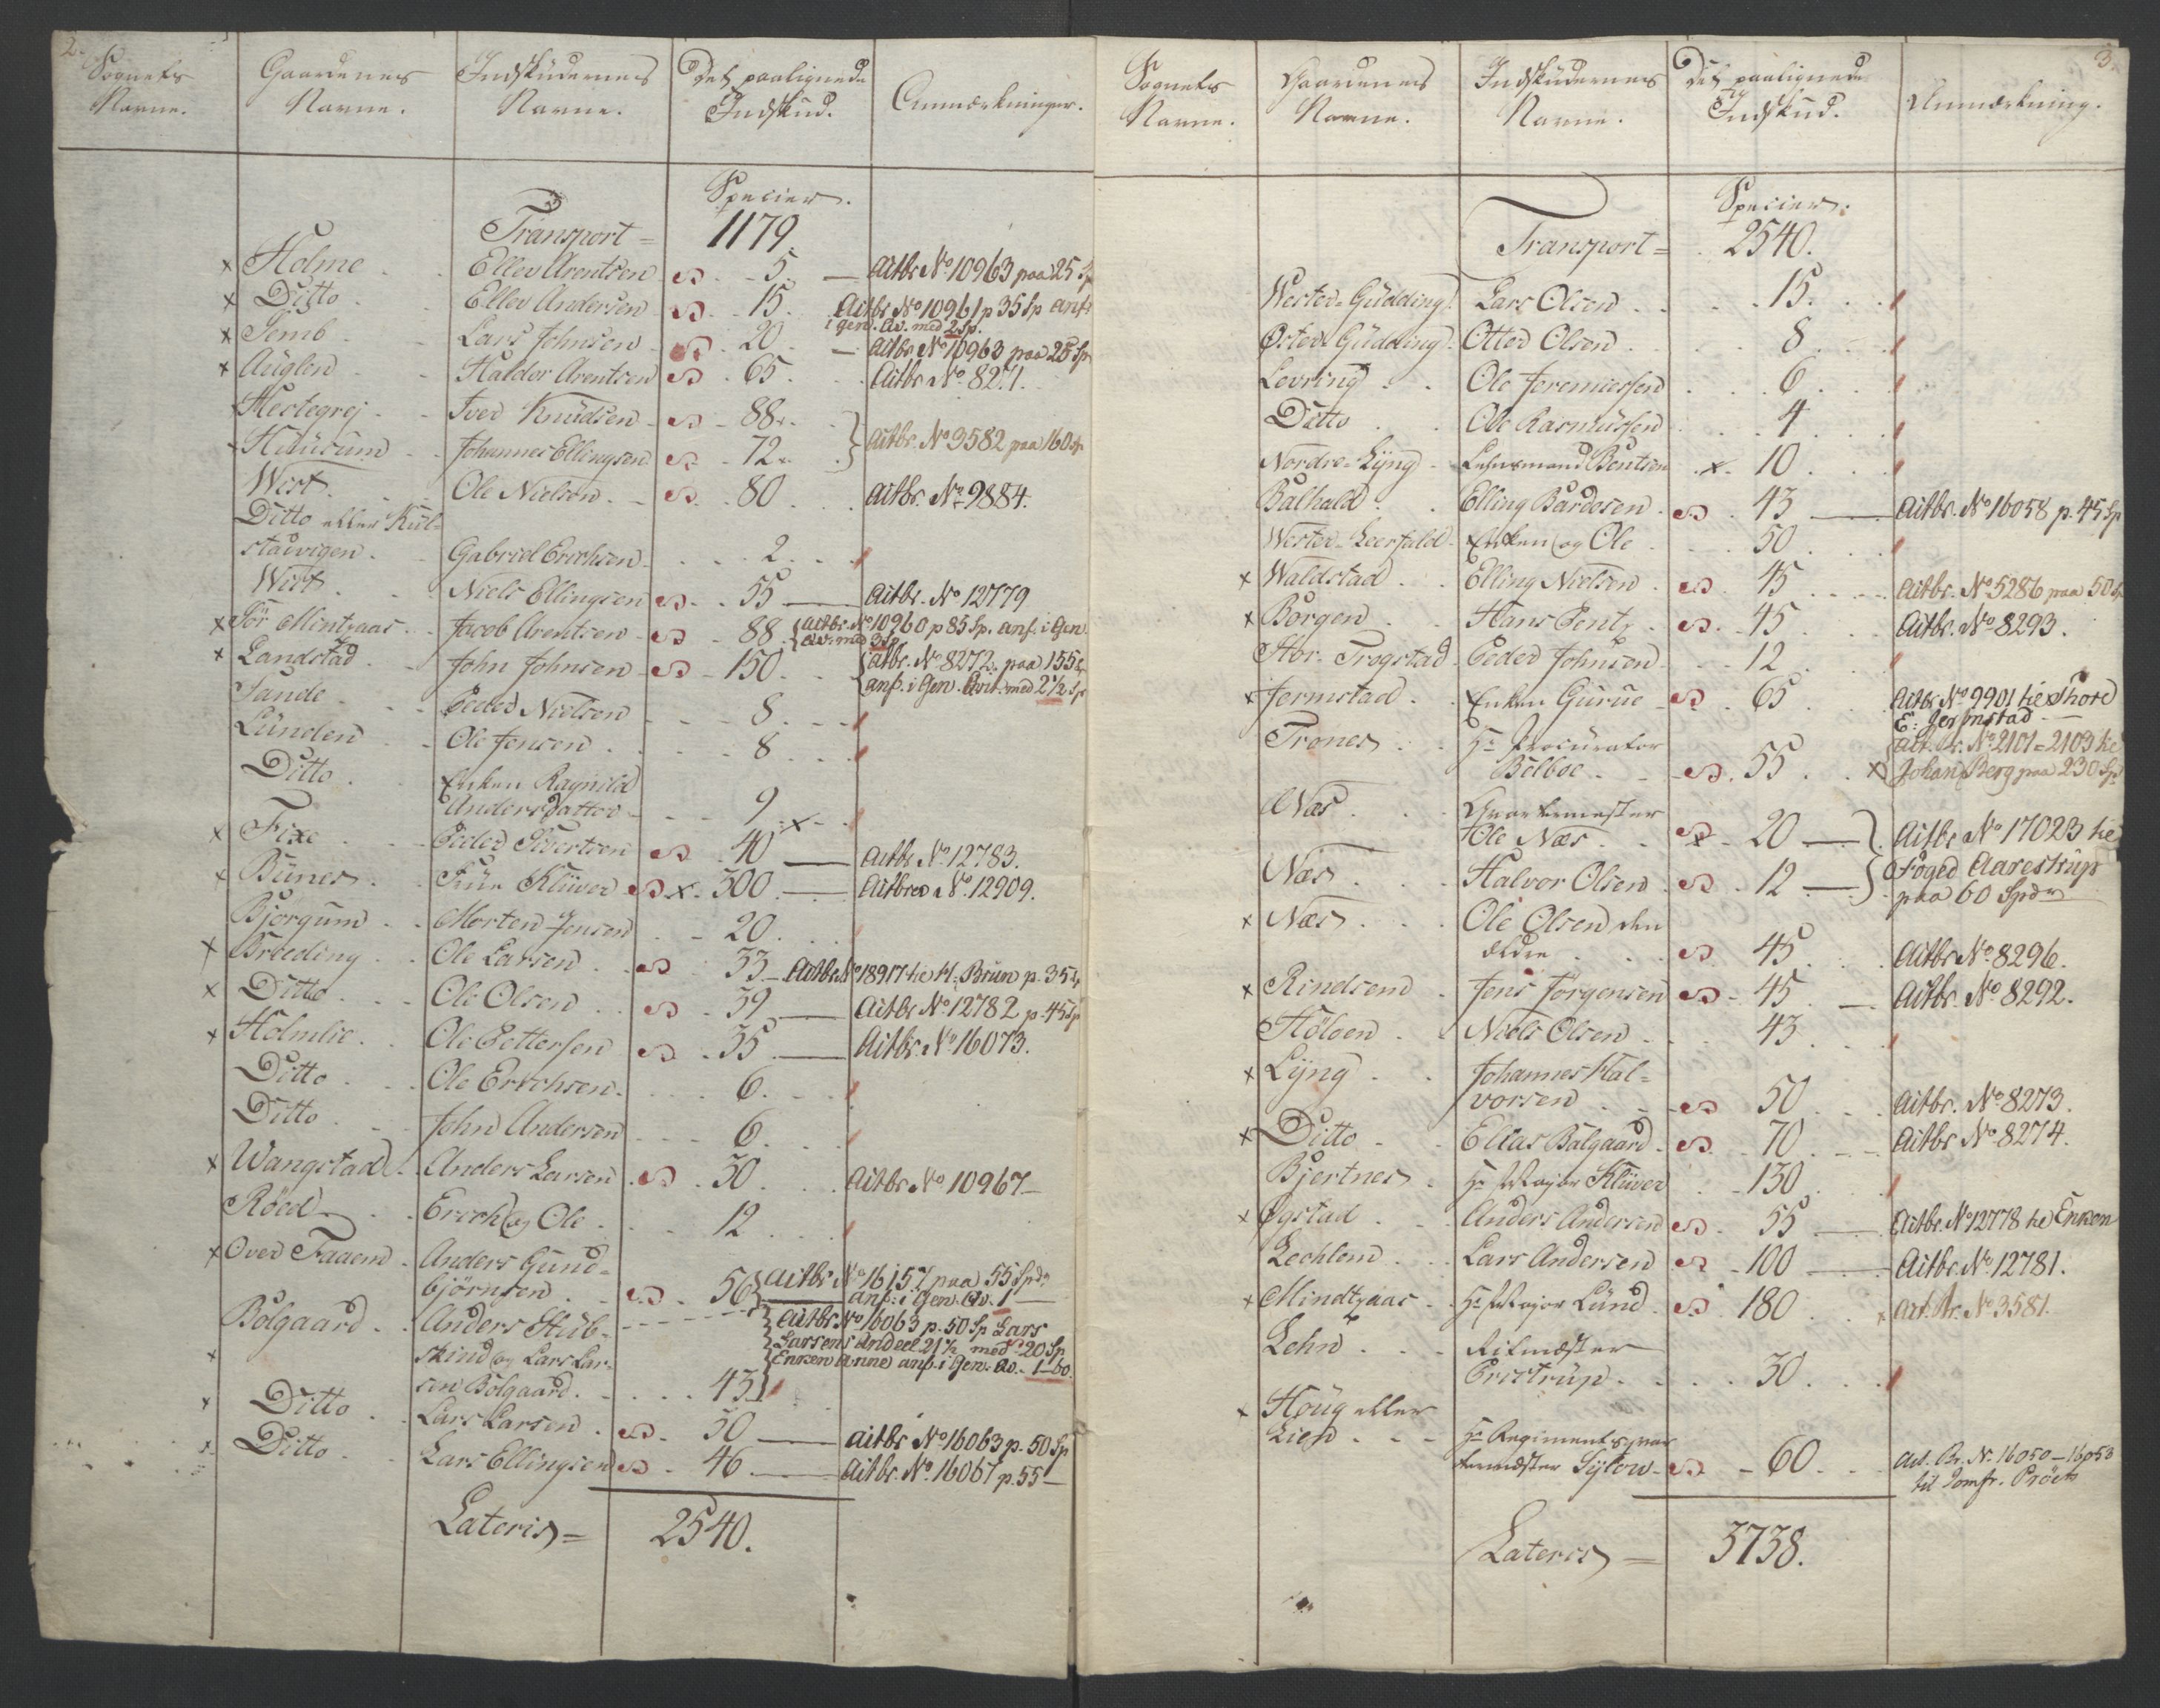 2.
Sognets Navne. Gaardenes Navne. Indskudernes Navne. Det paalignede Indskud. Anmærkninger.
Specier.
Transport = 1179.
x Holme Ellev Arentsen 5. Actbr No 10963 paa 25 Sp
x Ditto Ellev Andersen 15. Actbr No 10961 p 35 Sp anf:
i gen. Qv. med 2 Sp.
x Temb Lars Johnsen 20 Actbr No 10963 paa 25 Sp
x Auglen Haldor Arentsen 65. Actbr No 8271.
Hestegrej Iver Knudsen 88.
Huusum Johannes Ellingsen 72. Actbr. No 3582 paa 160 Sp
West. Ole Nielsen 80 Actbr. No 9884.
Ditto eller Kul-
stadvigen. Gabriel Erichsen 2.
West Niels Ellingsen 55 Actbr. No 12779
x Sör Mintzaas Jacob Arentsen 88 Actbr No 10960 p 85 Sp. anf. i Gen.
Qv. med 3 Sp
x Landstad John Johnsen 150 Actbr. No 8272. paa 155 Sp
anf. i Gen. Qvit. med 2 1/2 Sp
Sande Peder Nielsen 8.
Lunden Ole Jensen 8
Ditto Enken Ragnild
Andersdatter 9
x Fixe Peder Sivertsen x 40 Actbr No 12783.
x Bunes Frue Klüver x 300 Actbr No 12909.
Bjorgum Morten Jensen 20
x Breeding Ole Larsen 33 Actbr No 18917 til H: Brun p. 35 Sp
x Ditto Ole Olsen 39 Actbr No 12782 p. 45 Sp
x Holmlie Ole Pettersen 35 Actbr No 16073.
Ditto Ole Erichsen 6.
Ditto John Andersen 6.
x Wangstad Anders Larsen 30 Actbr No 10967
Röed Erich og Ole 12
x Over Faaem Anders Gund-
björnsen 56 Actbr No 16157 paa 55 Spdr
anf: i Gen. Qv. 1
Bolgaard Anders Stub- Actbr No 16063 p. 50 Sp Lars
x skind og Lars Lar- Larsens Andeel 21 1/2 med 20 Sp
Enken Anne anf. i Gen. Qv. 1-60.
sen Bolgaard. 43
x Ditto Lars Larsen 50 Actbr No 16063 p. 50 Sp
x Ditto Lars Ellingsen 46 Actbr No 16067 p. 55
Lateris = 2540.
3.
Sognets Navne. Gaardenes Navne. Indskudernes Navne. Det paalignede Indskud. Anmærkning.
Specier.
Transport = 2540.
Wester-Gudding Lars Olsen 15.
Öster-Gudding Otter Olsen 8
Levring Ole Jeremiessen 6
Ditto Ole Rasmussen 4
Nordre-Lyng Lehnsmand Bentsen x 10
Balhald Elling Bardosen 43 Actbr. No 16058 p. 45 Sp
Wester-Leerfald Enken og Ole 50
x Waldstad Elling Nielsen 45 Actbr. No 5286 paa 50 Sp
x Borgen Hans Pentz 45 Actbr. No 8293.
Stor-Trogstad Peder Johnsen 12
x Jermstad Enken Gurue 65 Actbr No 9901 til Thore
E: Jermstad
Trones Hr Procurator Act. Br. No 2101-2103 til
Bölboe 55 x Johan Berg paa 230 Sp
Næs Quartermester
Ole Næs x 20 Actbr No 17023 til
Næs Halvor Olsen 12 Foged Aarestrup
paa 60 Spdr
x Næs Ole Olsen den
ældre 45 Actbr No 8296.
x Rindsem Jens Jorgensen 45 Actbr. No 8292.
Stölven Niels Olsen 43
x Lyng Johannes Hal-
vorsen 50 Actbr. No 8273.
x Ditto Ellas Balgaard 70 Actbr No 8274.
Bjertnes Hr Major Klüver 130
x Ögstad Anders Andersen 55 Actbr. No 12778 til Enken
Lechlem Lars Andersen 100 Actbr. No 12781.
x Mindtzaas Hr Major Lund 180 x Act. Br. No 3581.
Lehn Ritmæster
Ericstrup 30
x Höug eller
Lien Hr Regimentsqvar
termæster Sylow 60 Act. Br. No 16050-16053
til Jomfr. Pröetz
Lateris = 3738.